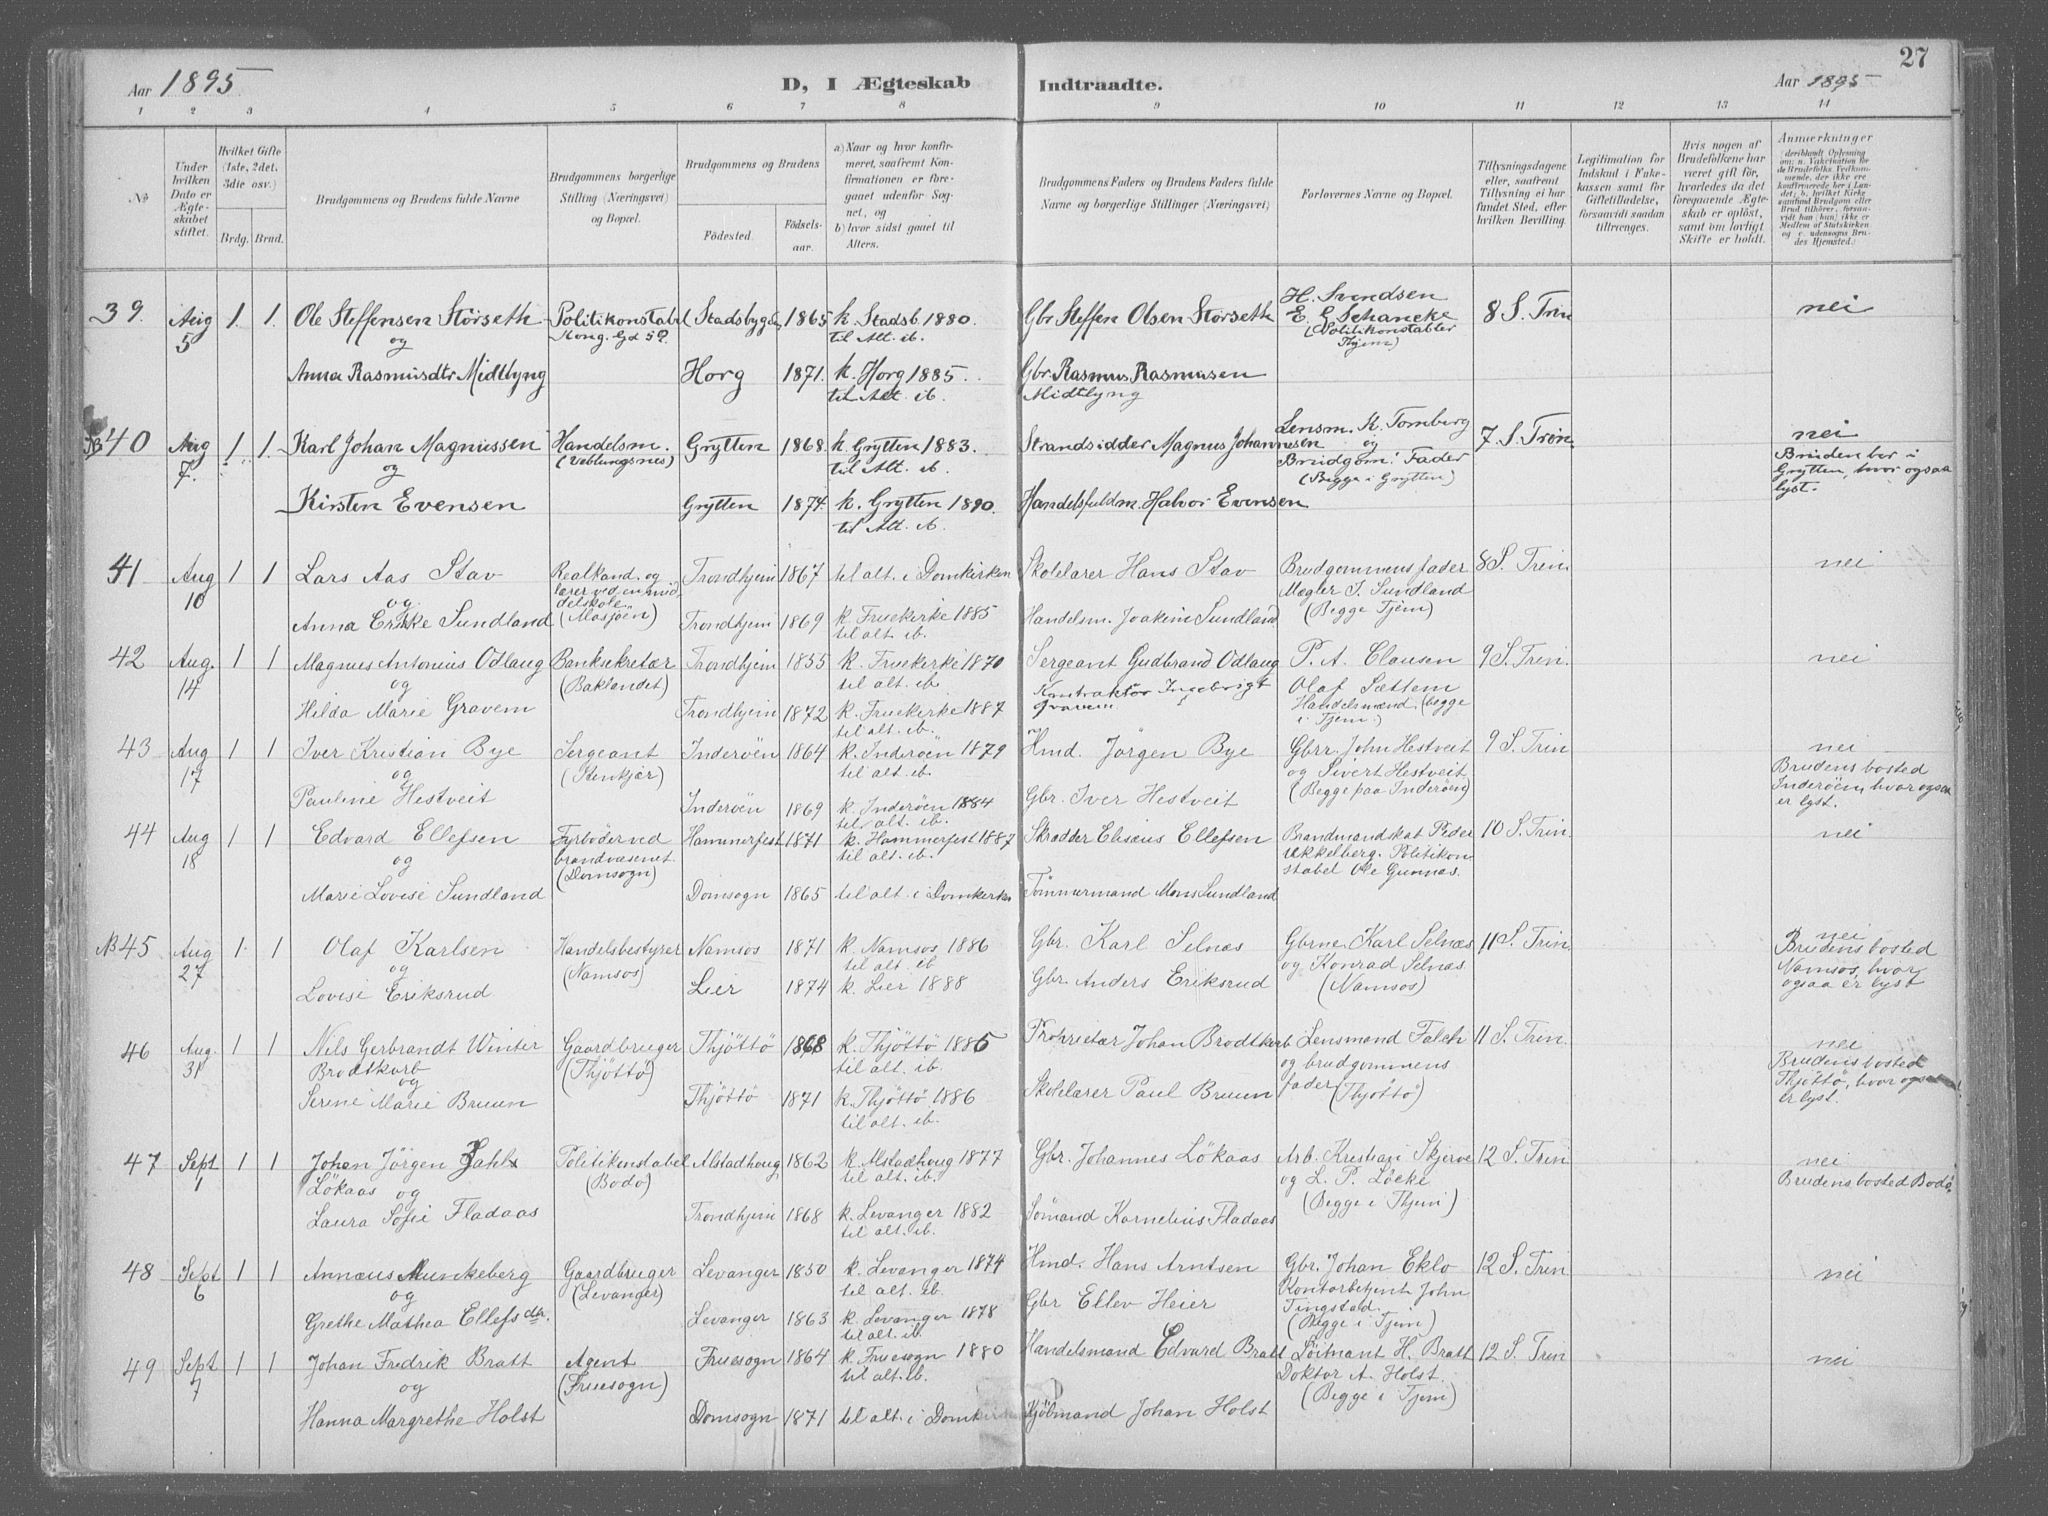 27
Aar 1895
D, I Ægteskab Indtraadte.
Aar 1895
1 2 3 4 5 6 7 8 9 10 11 12 13 14
№
Under hvilken Dato er Ægteskabet stiftet.
Hvilket Gifte (1ste, 2det, 3die osv.)
Brdg. Brud.
Brudgommens og Brudens fulde Navne
Brudgommens borgerlige Stilling (Næringsvei) og Bopæl.
Brudgommens og Brudens
Fødested. Fødselsaar.
a) Naar og hvor konfirmeret, saafremt Konfirmationen er foregaaet udenfor Sognet, og
b) hvor sidst gaaet til Alters.
Brudgommens Faders og Brudens Faders fulde Navne og borgerlige Stillinger (Næringsvei)
Forlovernes Navne og Bopæl.
Tillysningsdagene eller, saafremt Tillysning ei har fundet Sted, efter hvilken Bevilling.
Legitimation for Indskud i Enkekassen samt for Giftetilladelse, forsaavidt saadan tiltrænges.
Hvis nogen af Brudefolkene har været gift før, hvorledes da det foregaaende Ægteskab er opløst, samt om lovligt Skifte er holdt.
Anmerkninger
39. Aug 5 1. 1. Ole Steffensen Størseth Politikonstabel Stadsbygden 1865 k. Stadsb. 1880. Gbr Steffen Olsen Størseth H. Svendsen 8 S. Trin nei
og til Alt. ib. E. G Schancke
(Politikonstabler
Thjem)
Anna Rasmusdtr Midtlyng Horg 1871. k. Horg 1885. Gbr. Rasmus Rasmusen
til Alt. ib. Midtlyng
40 Aug 7. 1 1. Karl Johan Magnussen Handelsm. Grytten 1868. k Grytten 1883. Strandsidder Magnus Johannesen Lensm. K. Tomberg 7. S. Trin nei
og (Veblungsnes) til Alt. ib. og
Brudgom. Fader Bruden bor i
(Begge i Grytten) Grytten, hvor ogsaa
lyst.
Kirsten Evensen Grytten 1874. k. Grytten 1890. Handelsfuldm. Halvor Evensen
til Alt. ib.
41 Aug 10 1 1 Lars Aas Stav Realkand. og Trondhjem 1867 til alt. i Domkirken Skolelærer Hans Stav Brudgommens fader 8 S. Trin nei
og lærer ved en middelskole. Mægler J. Sundland
Anna Erikke Sundland (Mosjöen) Trondhjem 1869 k. Fruekirke 1885 Handelsm. Joakim Sundland (Begge Tjem)
til alt. ib.
42 Aug. 14 1 1 Magnus Antonius Odlaug Banksekretær Trondhjem 1855 k. Fruekirke 1870 Sergeant Gudbrand Odlaug P. A. Clausen 9 S. Trin. nei
og (Baklandet) til alt. ib. Kontraktör Ingebrigt Olaf Sættem
Hilda Marie Gravem Trondhjem 1872 k. Fruekirke 1887 Gravem Handelsmænd. (begge
til alt. ib. i Tjem.)
43 Aug 17 1 1 Iver Kristian Bye Sergeant Inderöen 1864 k. Inderöen 1879 Hmd. Jörgen Bye Gbrr. John Hestveit 9 S. Trin nei
og (Stenkjær) til alt. ib. og Sivert Hestveit Brudens bosted
Pauline Hestveit Inderöen 1869 k. Inderöen 1884 Gbr. Iver Hestveit (Begge paa Inderöen) Inderöen, hvor ogsaa
til alt. ib. er lyst.
44 Aug 18 1 1 Edvard Ellefsen Fyrböder ved Hammerfest 1871 k. Hammerfest 1887 Skrædder Eliseus Ellefsen Brandmandskab Peder 10 S. Trin. nei
og brandvæsenet. til alt. ib. Ukkelberg. Politikon
(Domsogn) stabel Ole Gunnæs.
Marie Lovise Sundland Domsogn 1865 til alt. i Domkirken Tömmermand Mons Sundland
NB 45 Aug 27 1. 1 Olaf Karlsen Handelsbestyrer Namsos 1871 k. Namsos 1886 Gbr. Karl Selnæs Gbrne. Karl Selnæs 11 S. Trin. nei
og (Namsos) til alt. ib og Konrad Selnæs. Brudens bosted
Lovise Eriksrud Lier 1874 k. Lier 1888 Gbr. Anders Eriksrud (Namsos) Namsos, hvor
ogsaa er lyst
46 Aug. 31 1 1 Nils Gerbrandt Winter Gaardbruger Thjöttö 1868 k. Thjöttö 1885 Proprietær Johan Brodtkorb Lensmand Falch 11 S. Trin. nei
Brodtkorb (Thjöttö) til alt. ib. og brudgommens Brudens bosted
og fader (Thjöttö) Thjöttö, hvor ogsaa
Serine Marie Bruun Thjöttö 1871 k. Thjöttö 1886 Skolelærer Paul Bruun er lyst.
til alt. ib.
47 Sept 1 1 1 Johan Jörgen Dahl Politikonstabel Alstadhoug 1862 k. Alstadhoug 1877 Gbr. Johannes Lökaas Arb. Kristian Skjerve 12 S. Trin nei
Lökaas og (Bodö) til alt. ib. og L. P. Löcke Brudens bosted Bodö.
Laura Sofie Fladaas Trondhjem 1868 k. Levanger 1882 Sömand Kornelius Fladaas (Begge i Thjem)
til alt. ib.
48 Sept 6 1 1 Annæus Munkeberg Gaardbruger Levanger 1850 k. Levanger 1874 Hmd. Hans Arntsen Gbr. Johan Eklo 12 S. Trin nei
og (Levanger) til alt. ib. Kontorbetjent John
Grethe Mathea Ellefsdtr. Levanger 1863 k. Levanger 1878 Gbr Ellev Heier Tingstad.
til alt. ib. (Begge i Tjem)
49 Sept 7 1 1 Johan Fredrik Bratt Agent Fruesogn 1864 k. Fruesogn 1880 Handelsmand Edvard Bratt Löitnant H. Bratt 12 S. Trin nei
og (Fruesogn) til alt. ib. Doktor A. Holst.
(Begge i Tjem)
Hanna Margrethe Holst Domsogn 1871 til alt. i Domkirken Kjöbmand Johan Holst